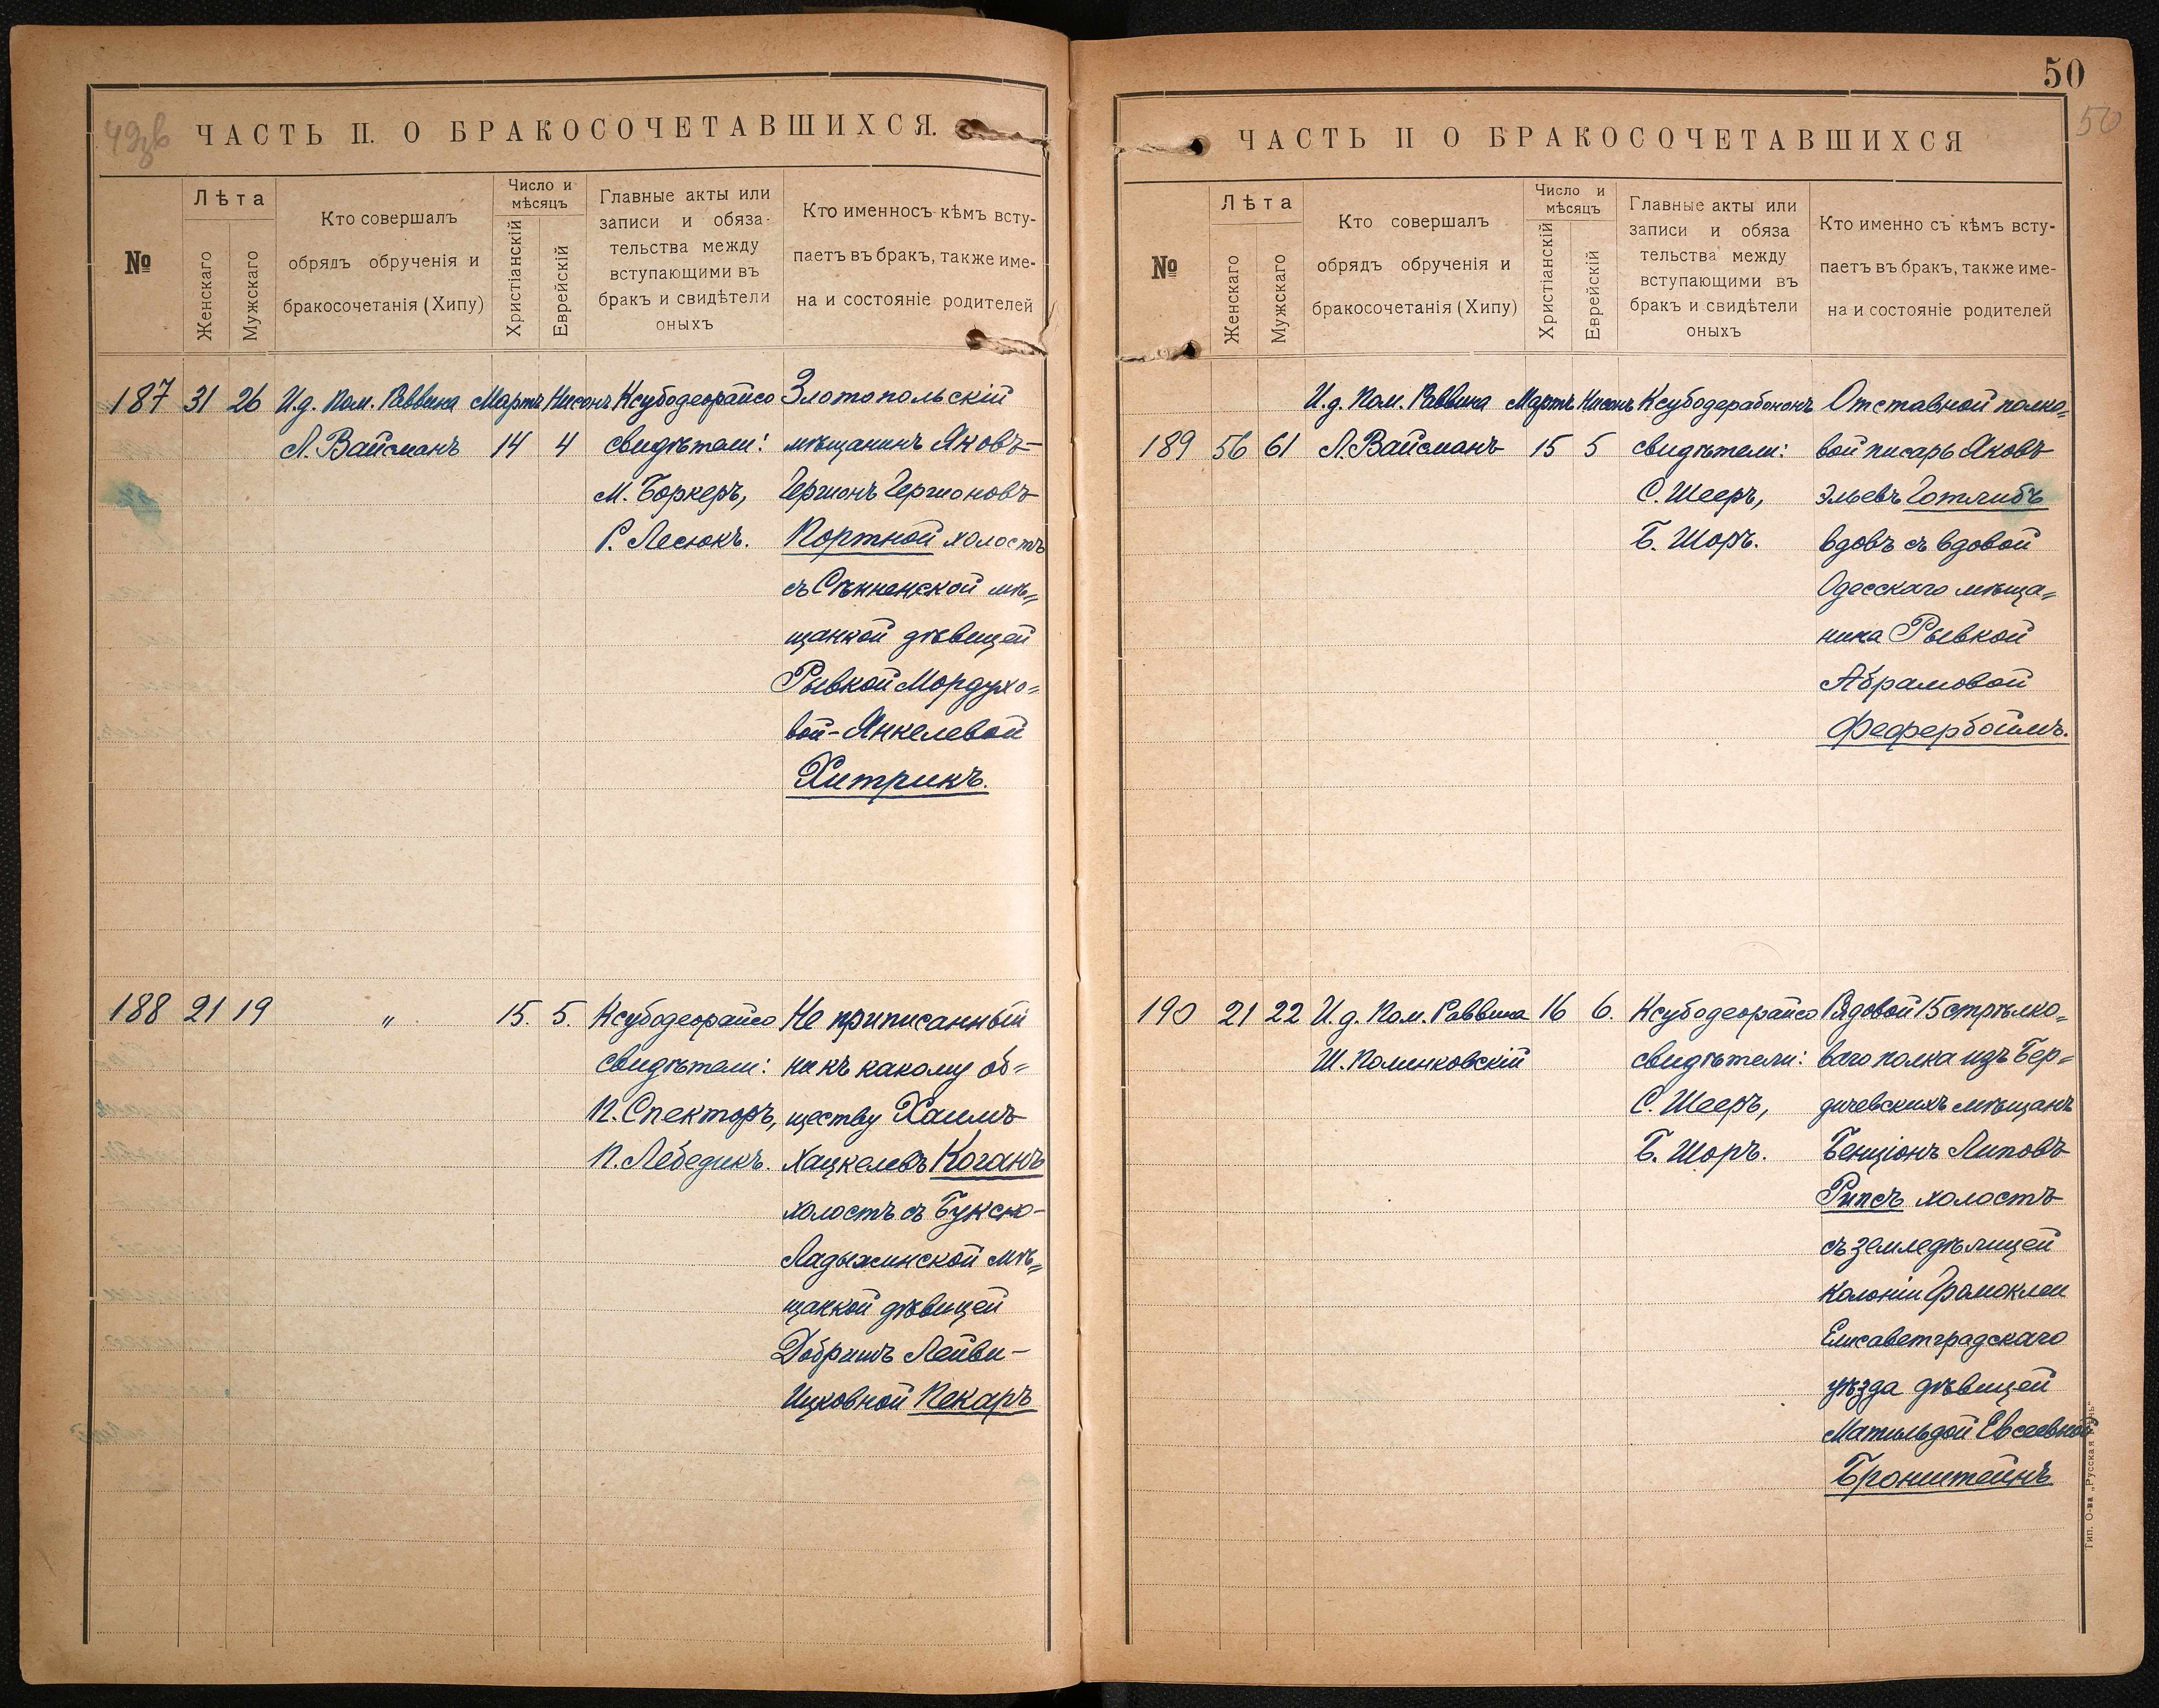 49зв
ЧАСТЬ II. О БРАКОСОЧЕТАВШИХСЯ.
№
Лѣта
Женскаго
Мужскаго
Кто совершалъ
обрядъ обрученія и
бракосочетанія (Хипу)
Число и
мѣсяцъ
Христіанскій
Еврейскій
Главные акты или
записи и обяза-
тельства между
вступающими въ
бракъ и свидѣтели
оныхъ
Кто именносъ кѣмъ всту-
паетъ въ бракъ, также име-
на и состояніе родителей
187 31 26
И.д. Пом. Раввина
Л. Вайсманъ
Мартъ
14
Нисонъ
4
Ксубодеорайсо
свидѣтели:
М. Боркеръ,
Р. Лесюкъ.
Златопольскій
мѣщанинъ Яковъ-
Гершонъ Гершоновъ
Портной холостъ
съ Сѣнненской мѣ=
щанкой дѣвицей
Рывкой Мордухо=
вой-Янкелевой
Хитрикъ.
188 21 19
"
15. 5.
Ксубодеорайсо
свидѣтели:
П. Спекторъ,
П. Лебедикъ.
Не приписанный
ни къ какому об=
ществу Хаимъ
Хацкелевъ Коганъ
холостъ съ Букско-
Ладыжинской мѣ=
щанкой дѣвицей
Добришъ Лейви-
Ицковной Пекаръ
50
50
ЧАСТЬ II О БРАКОСОЧЕТАВШИХСЯ
№
Лѣта
Женскаго
Мужскаго
Кто совершалъ
обрядъ обрученія и
бракосочетанія (Хипу)
Число и
мѣсяцъ
Христіанскій
Еврейскій
Главные акты или
записи и обяза
тельства между
вступающими въ
бракъ и свидѣтели
оныхъ
Кто именно съ кѣмъ всту-
паетъ въ бракъ, также име-
на и состояніе родителей
189 56 61
И.д. Пом. Раввина
Л. Вайсманъ
Мартъ
15
Нисонъ
5
Ксубодерабононъ
свидѣтели:
С. Шееръ,
Б. Шоръ.
Отставной полко=
вой писарь Яковъ
Эльевъ Готлибъ
вдовъ съ вдовой
Одесскаго мѣща=
нина Рывкой
Абрамовой
Фефербоймъ.
190 21 22
И.д. Пом. Раввина
Ш. Полинковскій
16 6.
Ксубодеорайсо
свидѣтели:
С. Шееръ,
Б. Шоръ.
Рядовой 15 стрѣлко=
ваго полка изъ Бер=
дичевскихъ мѣщанъ
Бенціонъ Липовъ
Рипсъ холостъ
съ земледѣлицей
колоніи Грамоклеи
Елисаветградскаго
уѣзда дѣвицей
Матильдой Евсеевной
Бронштейнъ
Тип. О-ва „Русская Рѣчь“